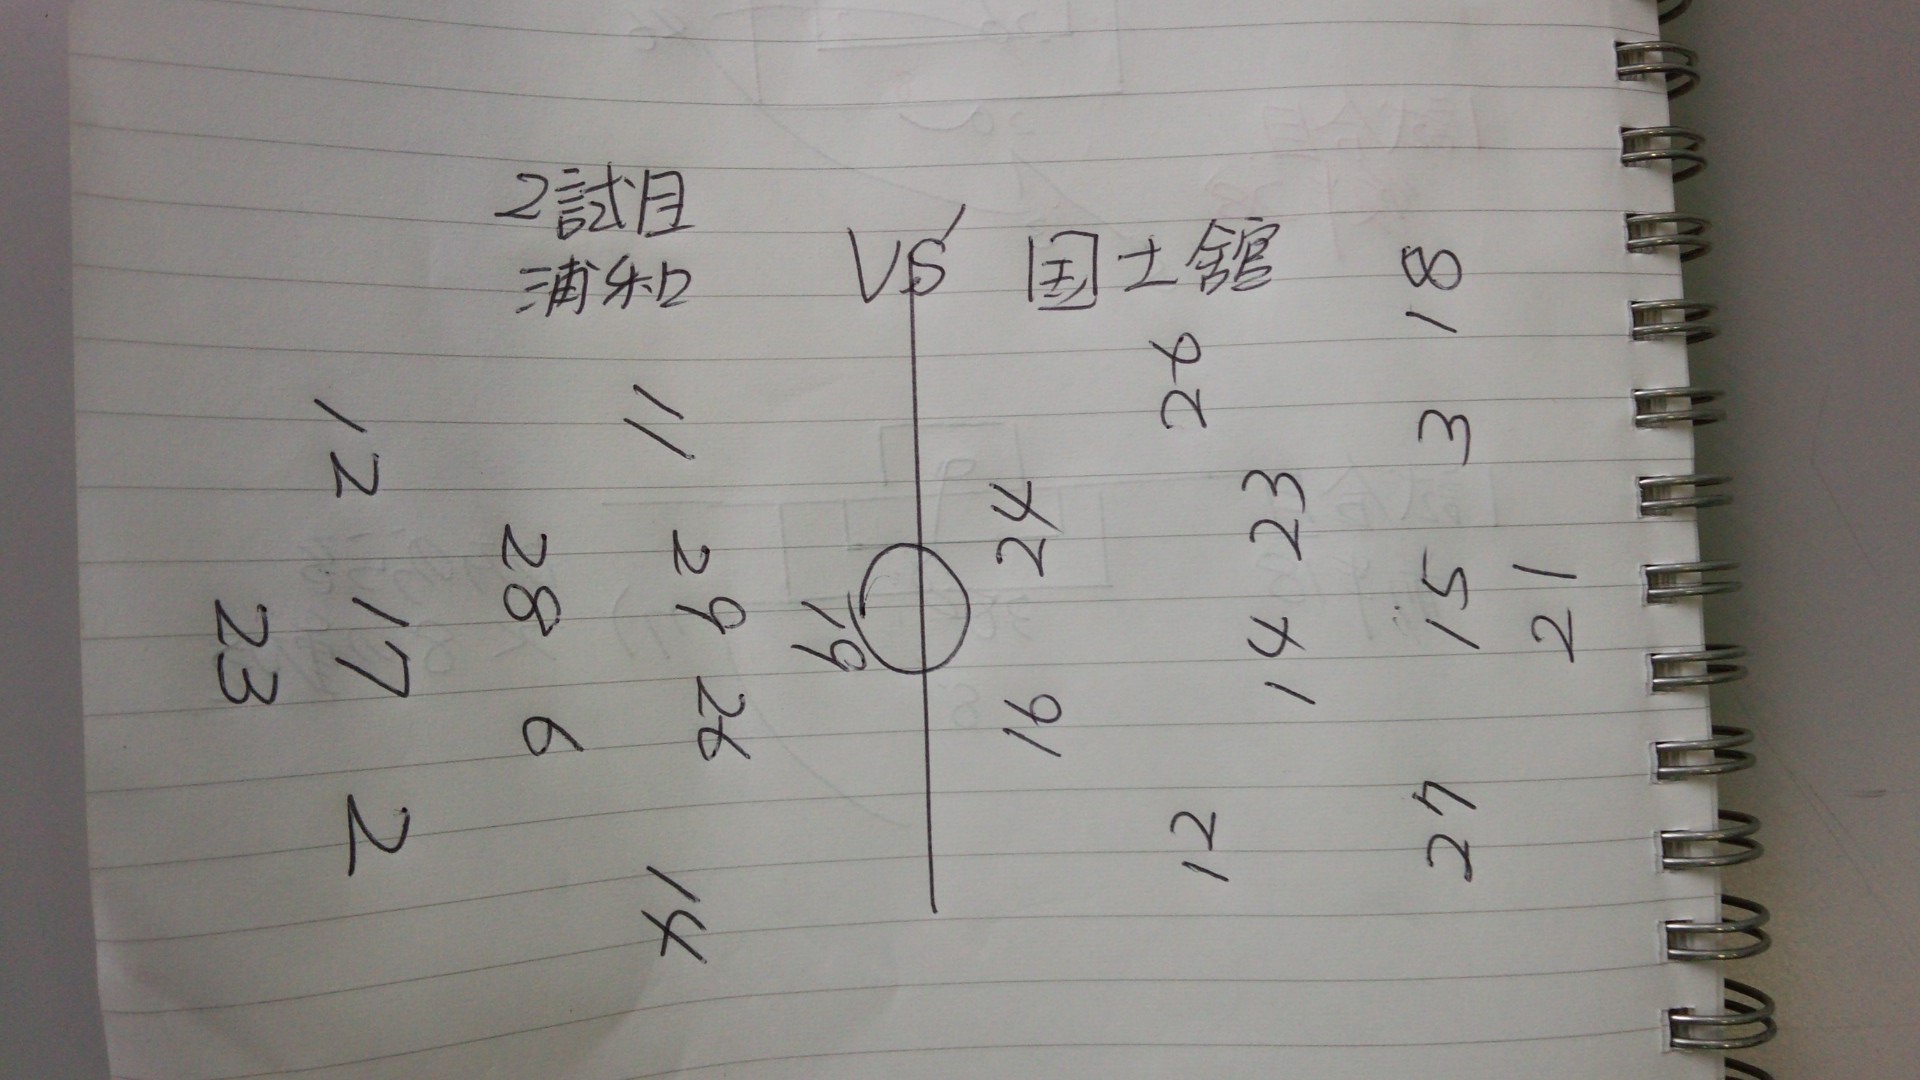 2試目
浦和 VS 国士舘
11
12
29
28
26
6
17
23
2
14
19
24
16
23
14
12
18
3
15
27
21